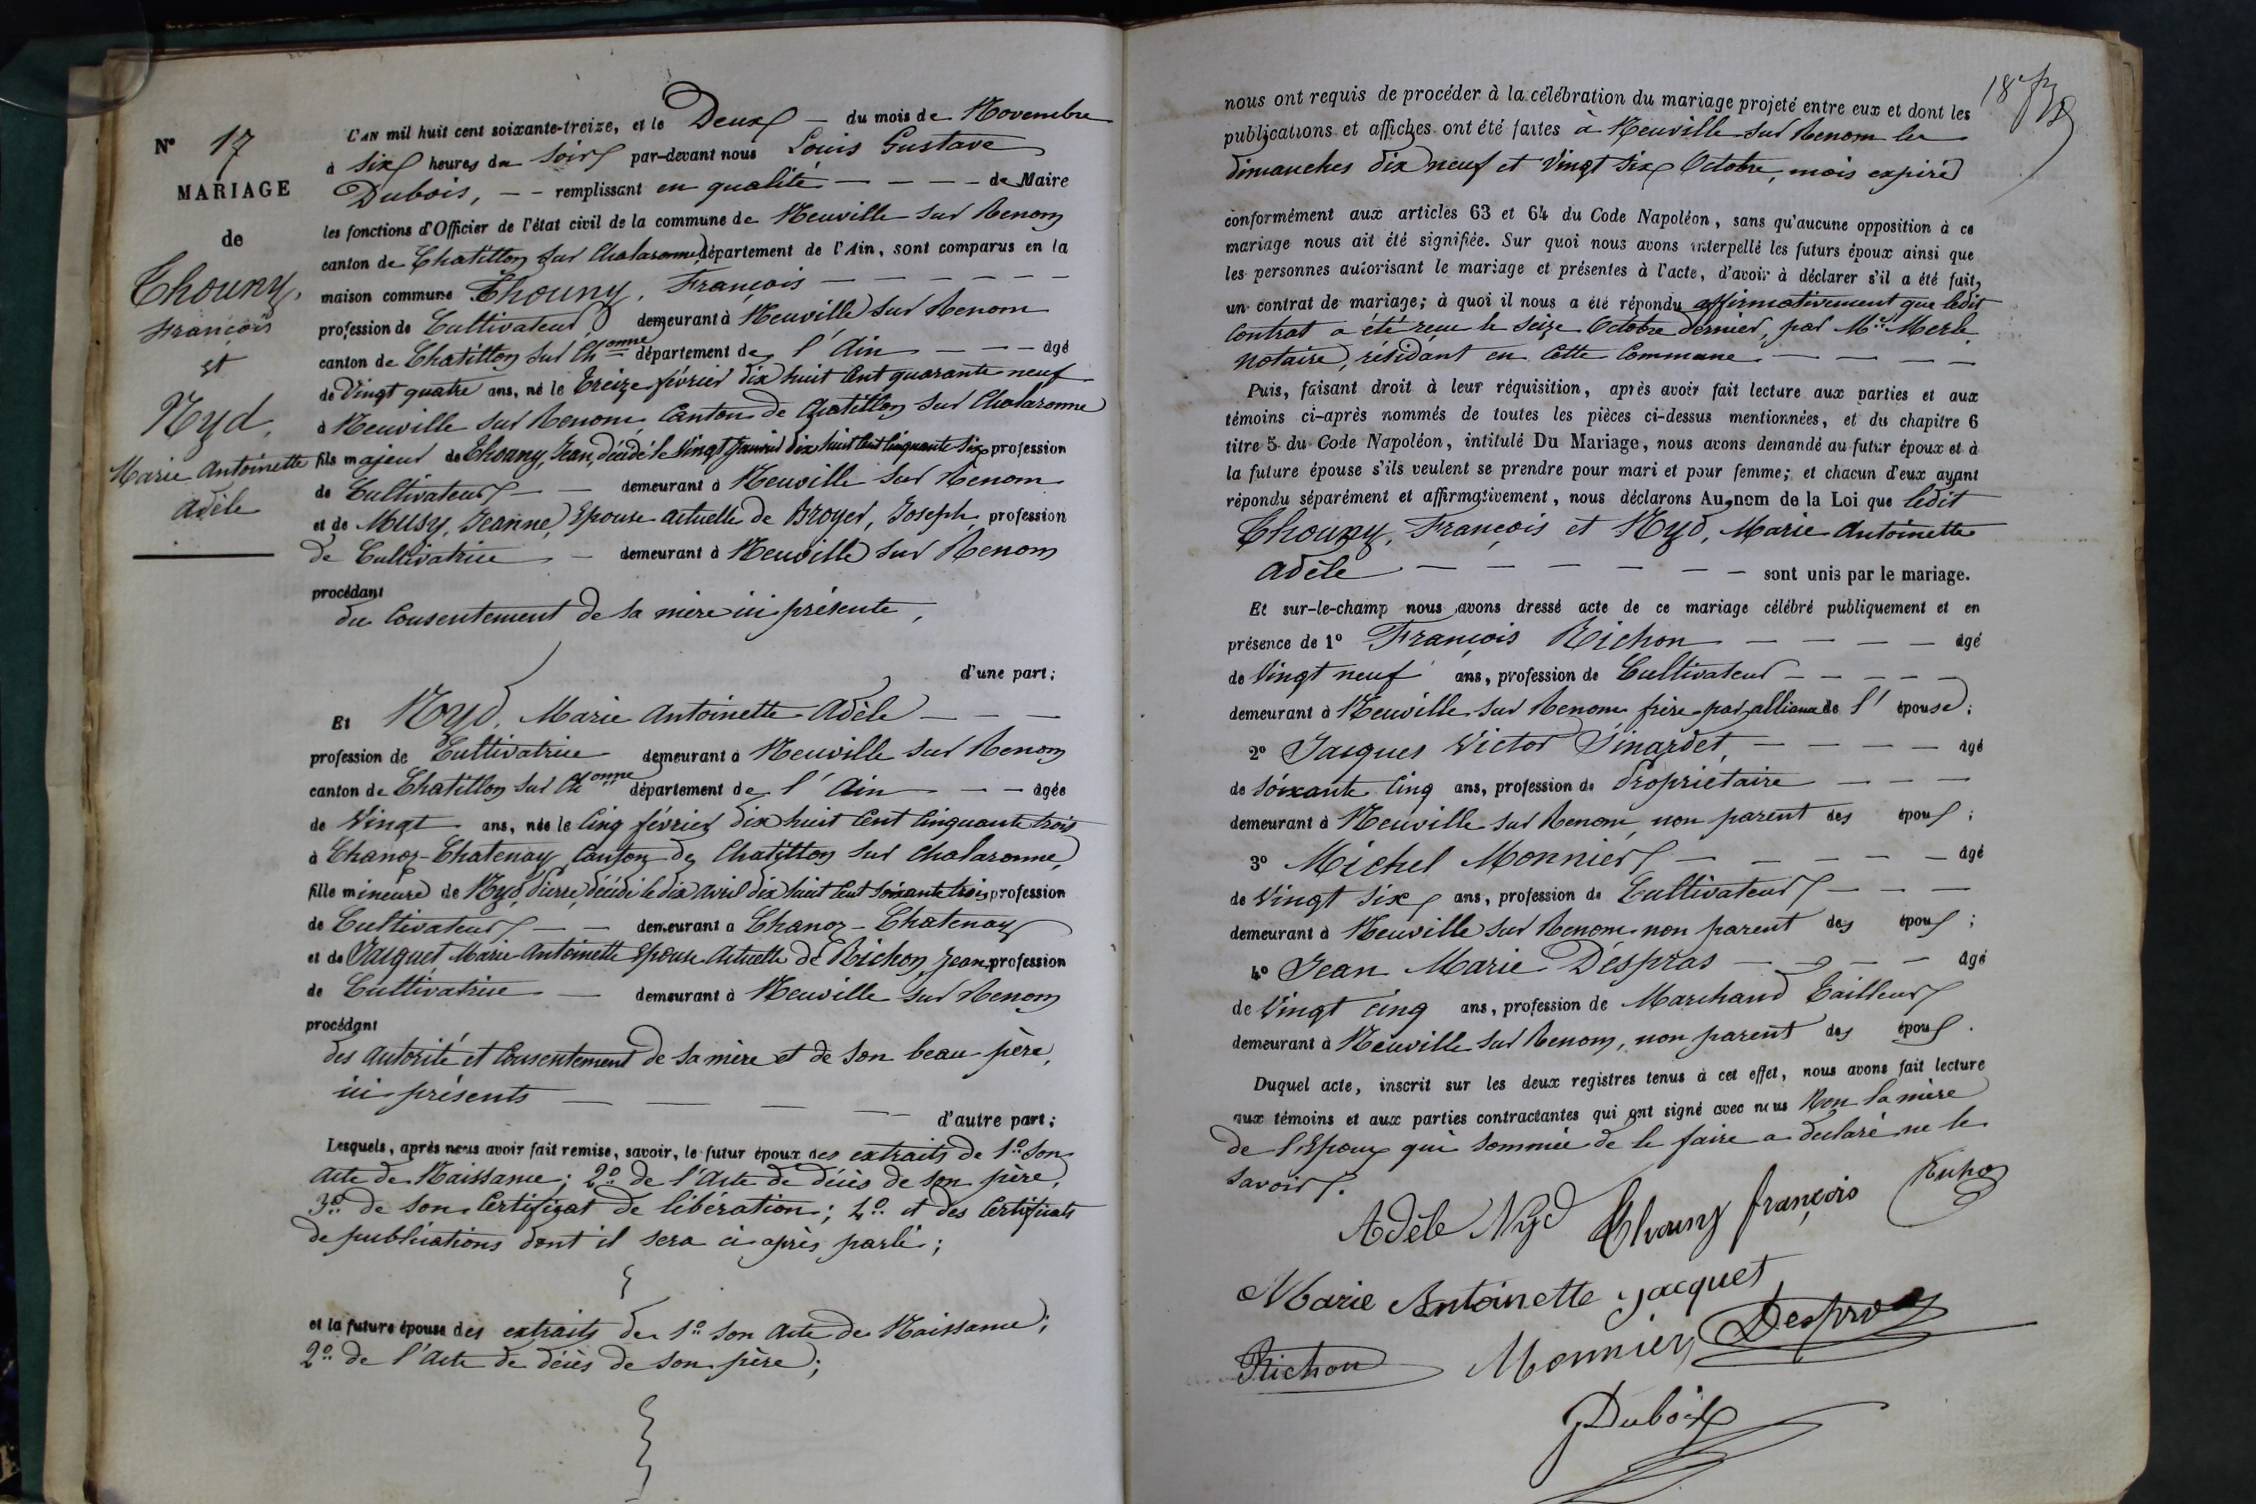 N° 17
MARIAGE
de
Thouny,
François
et
Nyd,
Marie Antoinette
Adèle
L'AN mil huit cent soixante-treize, et le Deux — du mois de Novembre
à six heures du soir par-devant nous Louis Gustave
Dubois, — — remplissant en qualité — — — — de Maire
les fonctions d'Officier de l'état civil de la commune de Neuville sur Renom
canton de Chatillon sur Chalaronne, département de l'Ain, sont comparus en la
maison commune Thouny, François — — — — — —
profession de Cultivateur, demeurant à Neuville sur Renom
canton de Chatillon sur Chonne département de l'Ain — — — agé
de Vingt quatre ans, né le treize février dix huit Cent quarante neuf
à Neuville sur Renom, Canton de Chatillon sur Chalaronne
fils majeur de Thouny, Jean, décédé le Vingt Janvier dix huit Cent Cinquante Six profession
de Cultivateur — — demeurant à Neuville sur Renom
et de Musy, Jeanne, Epouse actuelle de Broyer, Joseph, profession
de Cultivatrice — demeurant à Neuville sur Renom
procédant
du Consentement de sa mère ici présente,
d'une part;
Et Nyd, Marie Antoinette Adèle — — —
profession de Cultivatrice demeurant à Neuville sur Renom
canton de Chatillon sur Chonne département de l'Ain — — agée
de Vingt ans, née le Cinq février dix huit Cent Cinquante trois
à Chanoz-Chatenay Canton de Chatillon sur Chalaronne,
fille mineure de Nyd, Pierre, décédé le dix avril dix huit Cent Soixante trois, profession
de Cultivateur — — demeurant à Chanoz-Chatenay
et de Jacquet Marie Antoinette Epouse Actuelle de Richon, Jean, profession
de Cultivatrice — demeurant à Neuville sur Renom
procédant
des autorité et Consentement de sa mère et de son beau-père,
ici présents — — — —
d'autre part;
Lesquels, après nous avoir fait remise, savoir, le futur époux des extraits de 1° Son
Acte de Naissance; 2° de l'Acte de décès de son père,
3° de son Certificat de libération; 4° et des Certificats
de publications dont il sera ci après parlé;
et la future épouse des extraits de 1° son Acte de Naissance;
2° de l'Acte de décès de son père;
18
nous ont requis de procéder à la célébration du mariage projeté entre eux et dont les
publications et affiches ont été faites à Neuville sur Renom les
dimanches dix neuf et Vingt Six Octobre, mois expiré
conformément aux articles 63 et 64 du Code Napoléon, sans qu'aucune opposition à ce
mariage nous ait été signifiée. Sur quoi nous avons interpellé les futurs époux ainsi que
les personnes autorisant le mariage et présentes à l'acte, d'avoir à déclarer s'il a été fait
un contrat de mariage; à quoi il nous a été répondu affirmativement que ledit
Contrat a été reçu le Seize Octobre dernier, par Me Merle,
Notaire, résidant en Cette Commune — — — —
Puis, faisant droit à leur réquisition, après avoir fait lecture aux parties et aux
témoins ci-après nommés de toutes les pièces ci-dessus mentionnées, et du chapitre 6
titre 5 du Code Napoléon, intitulé Du Mariage, nous avons demandé au futur époux et à
la future épouse s'ils veulent se prendre pour mari et pour femme; et chacun d'eux ayant
répondu séparément et affirmativement, nous déclarons Au nom de la Loi que ledit
Thouny, François et Nyd, Marie Antoinette
Adèle — — — — — — sont unis par le mariage.
Et sur-le-champ nous avons dressé acte de ce mariage célébré publiquement et en
présence de 1° François Richon — — — — agé
de Vingt neuf ans, profession de Cultivateur — — — —
demeurant à Neuville sur Renom frère par alliance de l'épouse;
2° Jacques Victor Sinardet, — — — — agé
de Soixante Cinq ans, profession de Propriétaire — — —
demeurant à Neuville sur Renom, non parent des époux;
3° Michel Monnier — — — — — agé
de Vingt six ans, profession de Cultivateur — — —
demeurant à Neuville sur Renom non parent des époux;
4° Jean Marie Despras — — — — agé
de Vingt cinq ans, profession de Marchand Tailleur
demeurant à Neuville sur Renom, non parent des époux.
Duquel acte, inscrit sur les deux registres tenus à cet effet, nous avons fait lecture
aux témoins et aux parties contractantes qui ont signé avec nous Non la mère
de l'Epoux qui sommée de le faire a déclaré ne le
Savoir.
Adèle Nyd Thouny françois Richon
Marie Antoinette Jacquet
Richon Monnier Despras
Dubois